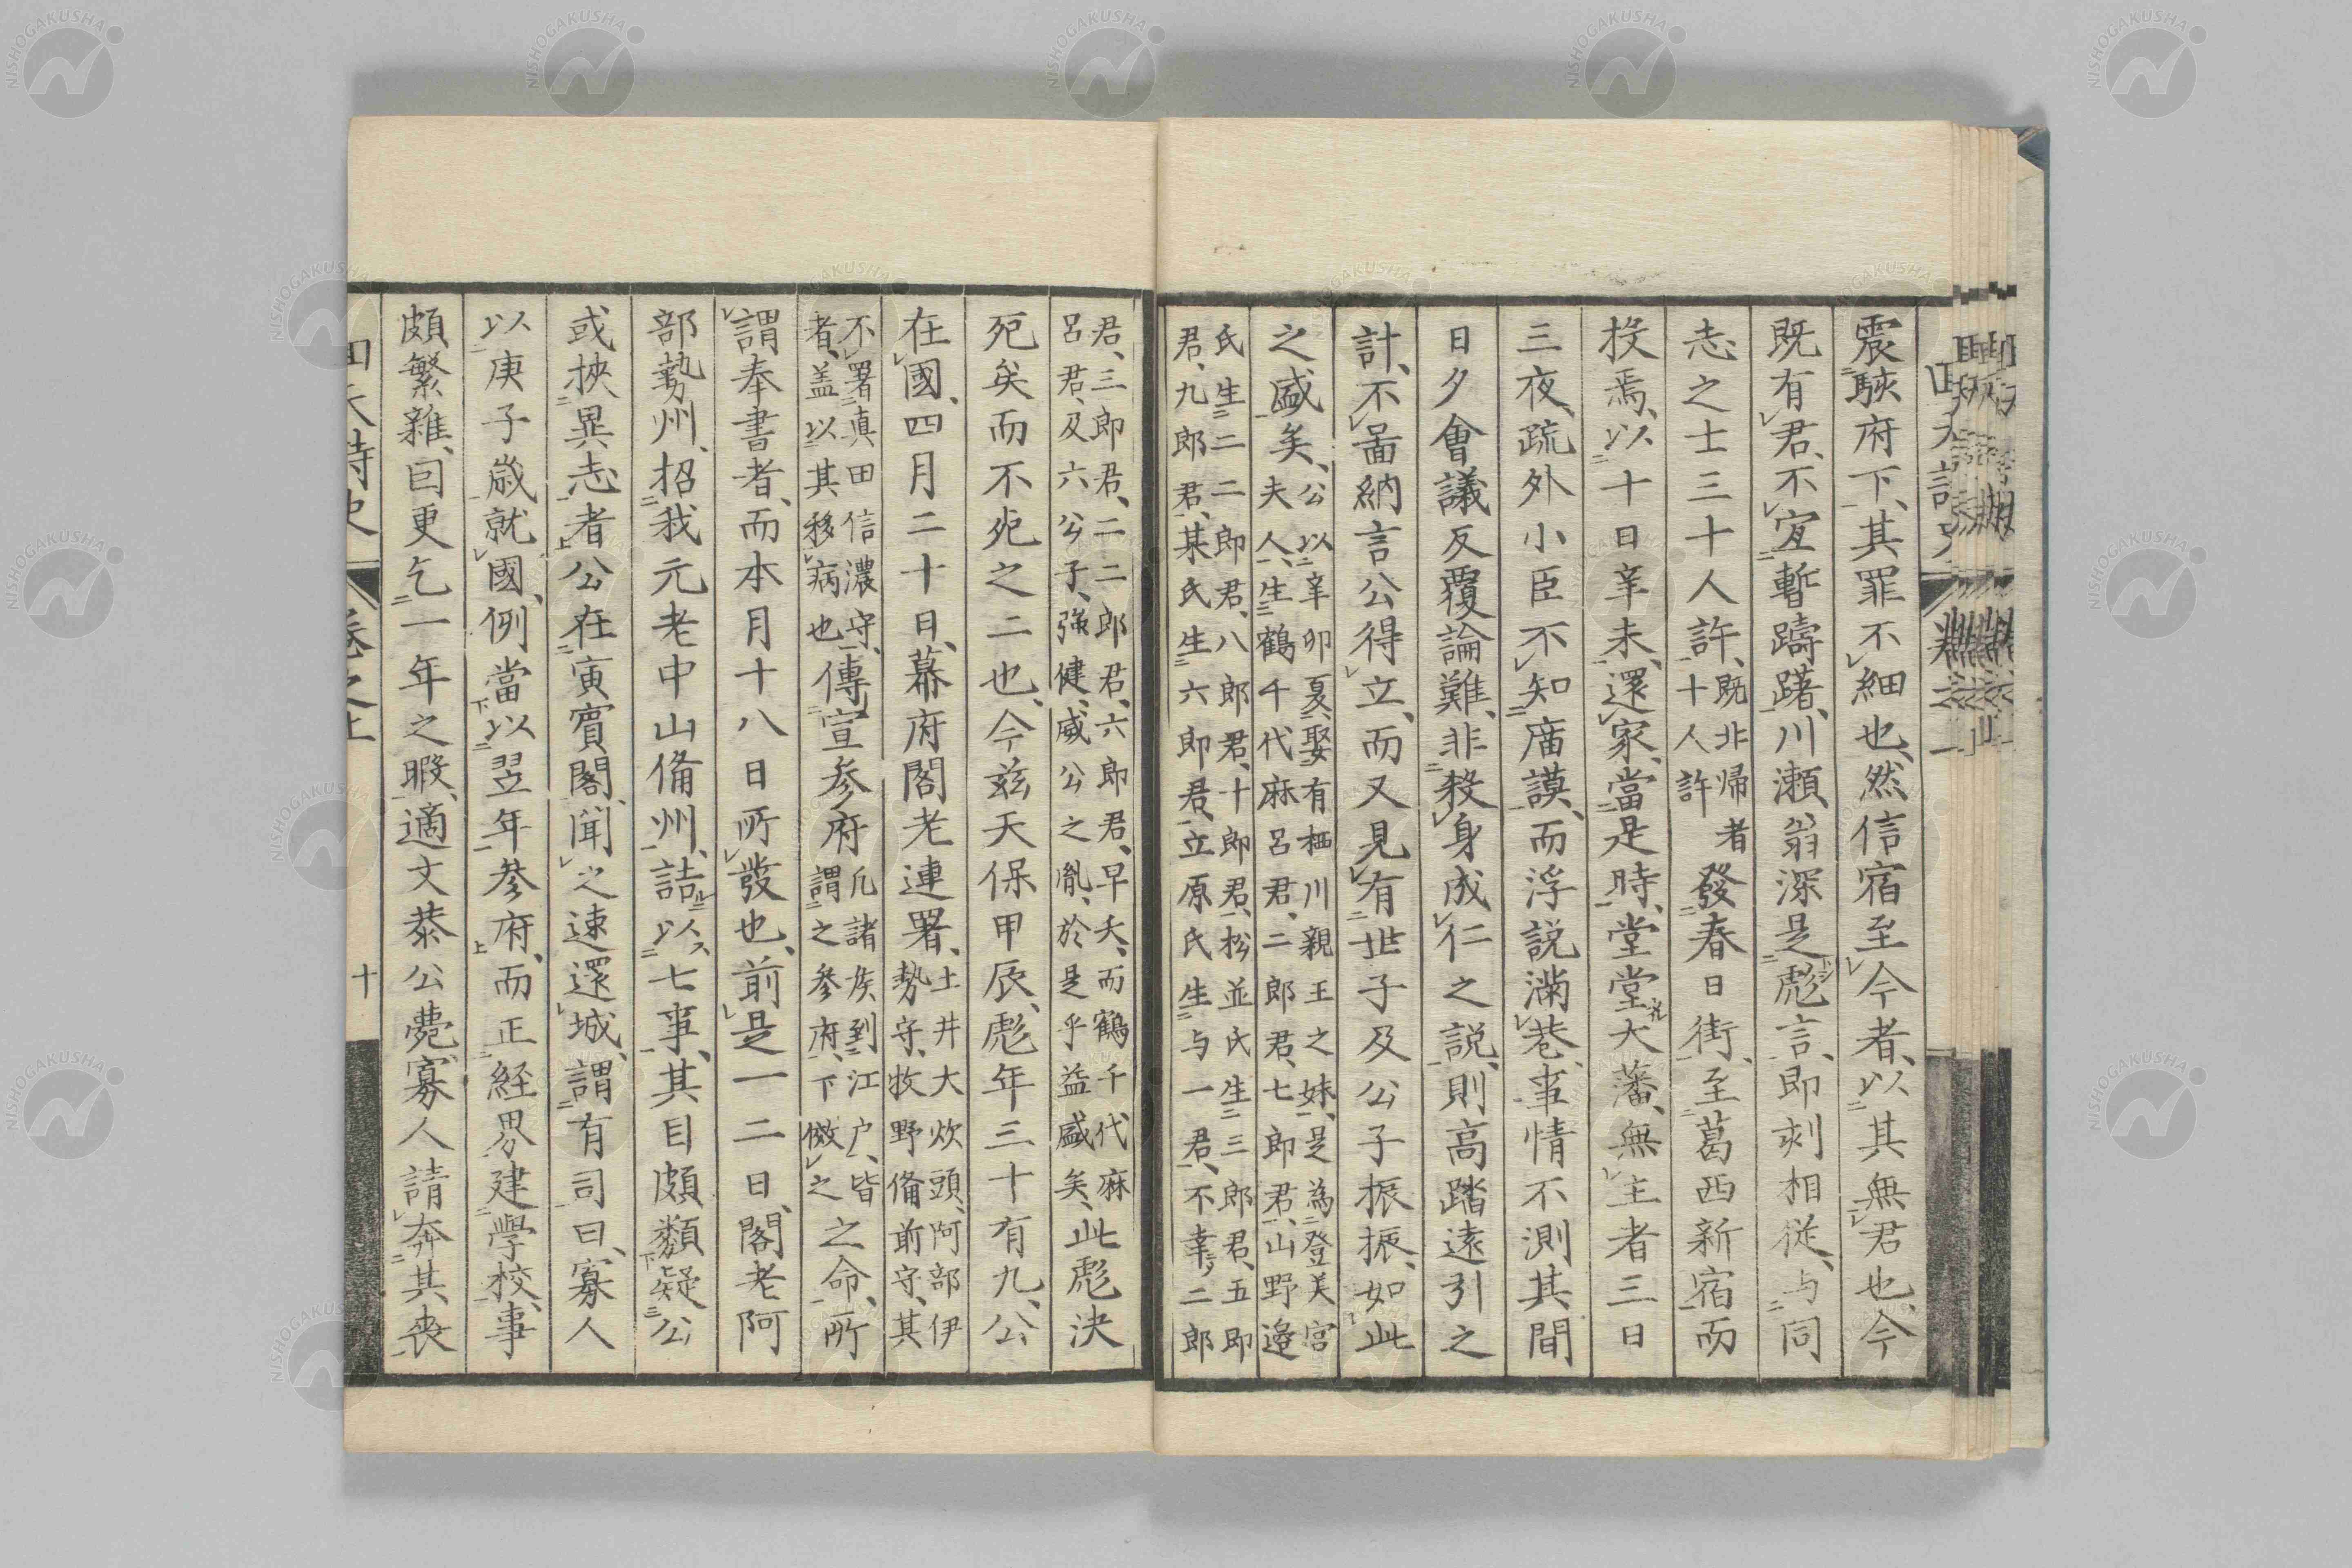 震駭府下、其罪不細也、然信宿至今者、以其無君也、今
既有君、不宜暫躊躇、川瀬翁深是彪言、即刻相従、与同
志之士三十人許、既非帰者十人許發春日街、至葛西新宿而
投焉、以十日辛未、還家、當是時、堂堂大藩、無主者三日
三夜、疏外小臣不知廣謨、而浮説満巷、事情不測、其間
日夕會議反覆論難、非殺身成仁之説、則高踏遠引之
計、不啚納言公得立、而又見有世子及公子振振、如此
之盛矣、公以辛卯夏、娶有栖川親王之妹、是為登美宮
夫人、生鶴千代麻呂君、二郎君、七郎君、山野邉
氏生二二郎君、八郎君、十郎君、松並氏生三郎君、五郎
君、九郎君、某氏生六郎君、立原氏生与一君、不幸、二郎
君、三郎君、二二郎君、六郎君、早夭、而鶴千代麻
呂君、及六公子、強健、威公之胤、於是乎益盛矣、此彪決
死矣而不死之二也、今茲天保甲辰、彪年三十有九、公
在國、四月二十日、幕府閣老連署、土井大炊頭、阿部伊
勢守、牧野備前守、其
不署真田信濃守、
者、盖以其移病也傳宣参府凡諸矦到江户、皆
謂之参府、下倣之之命、所
謂奉書者、而本月十八日所發也、前是一二日、閣老阿
部勢州、招我元老中山備州、詰以七事、其目頗纇疑公
或挾異志者、公在寅賓閣、聞之速還城、謂有司曰、寡人
以庚子歳就國、例當以翌年参府、而正経界建學校、事
頗繁雜、囙更乞一年之暇、適文恭公薨、寡人請奔其喪
卷之上
十